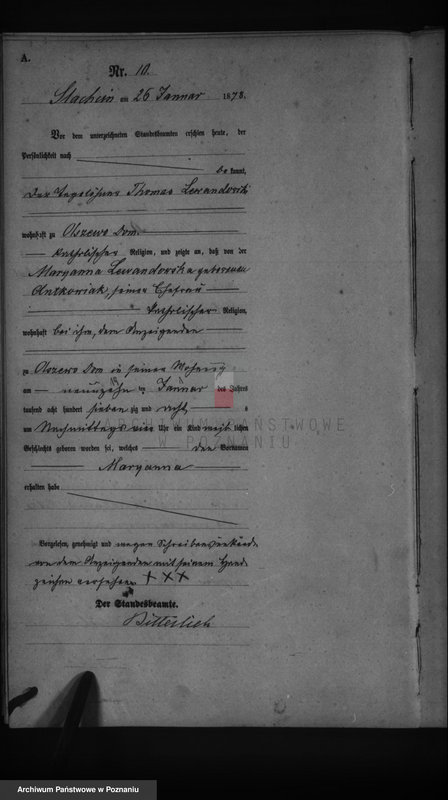 A.
Nr. 10.
am 26 Januar 1878.
Vor dem unterzeichneten Standesbeamten erschien heute, der
Persönlichkeit nach
be kannt,
Der Tagelöhner Thomas Lewandowski
wohnhaft zu Olszewo Dom.
katholischer Religion, und zeigte an, daß von der
Maryanna Lewandowska geborenen
seiner Ehefrau
katholischer Religion,
wohnhaft bei ihm, dem Anzeigenden
zu Olszewo Dom in seiner Wohnung
am neunzehn ten Januar des Jahres
tausend acht hundert sieben zig und acht
um Nachmittags vier Uhr ein Kind weib lichen
Geschlechts geboren worden sei, welches den Vornamen
Maryanna
erhalten habe
Vorgelesen, genehmigt und wegen
von dem Anzeigenden mit seinem Hand
zeichen versehen + X X
Der Standesbeamte.
Bitterlich
ARCHIWUM PAŃSTWOWE
W POZNANIU
Archiwum Państwowe w Poznaniu